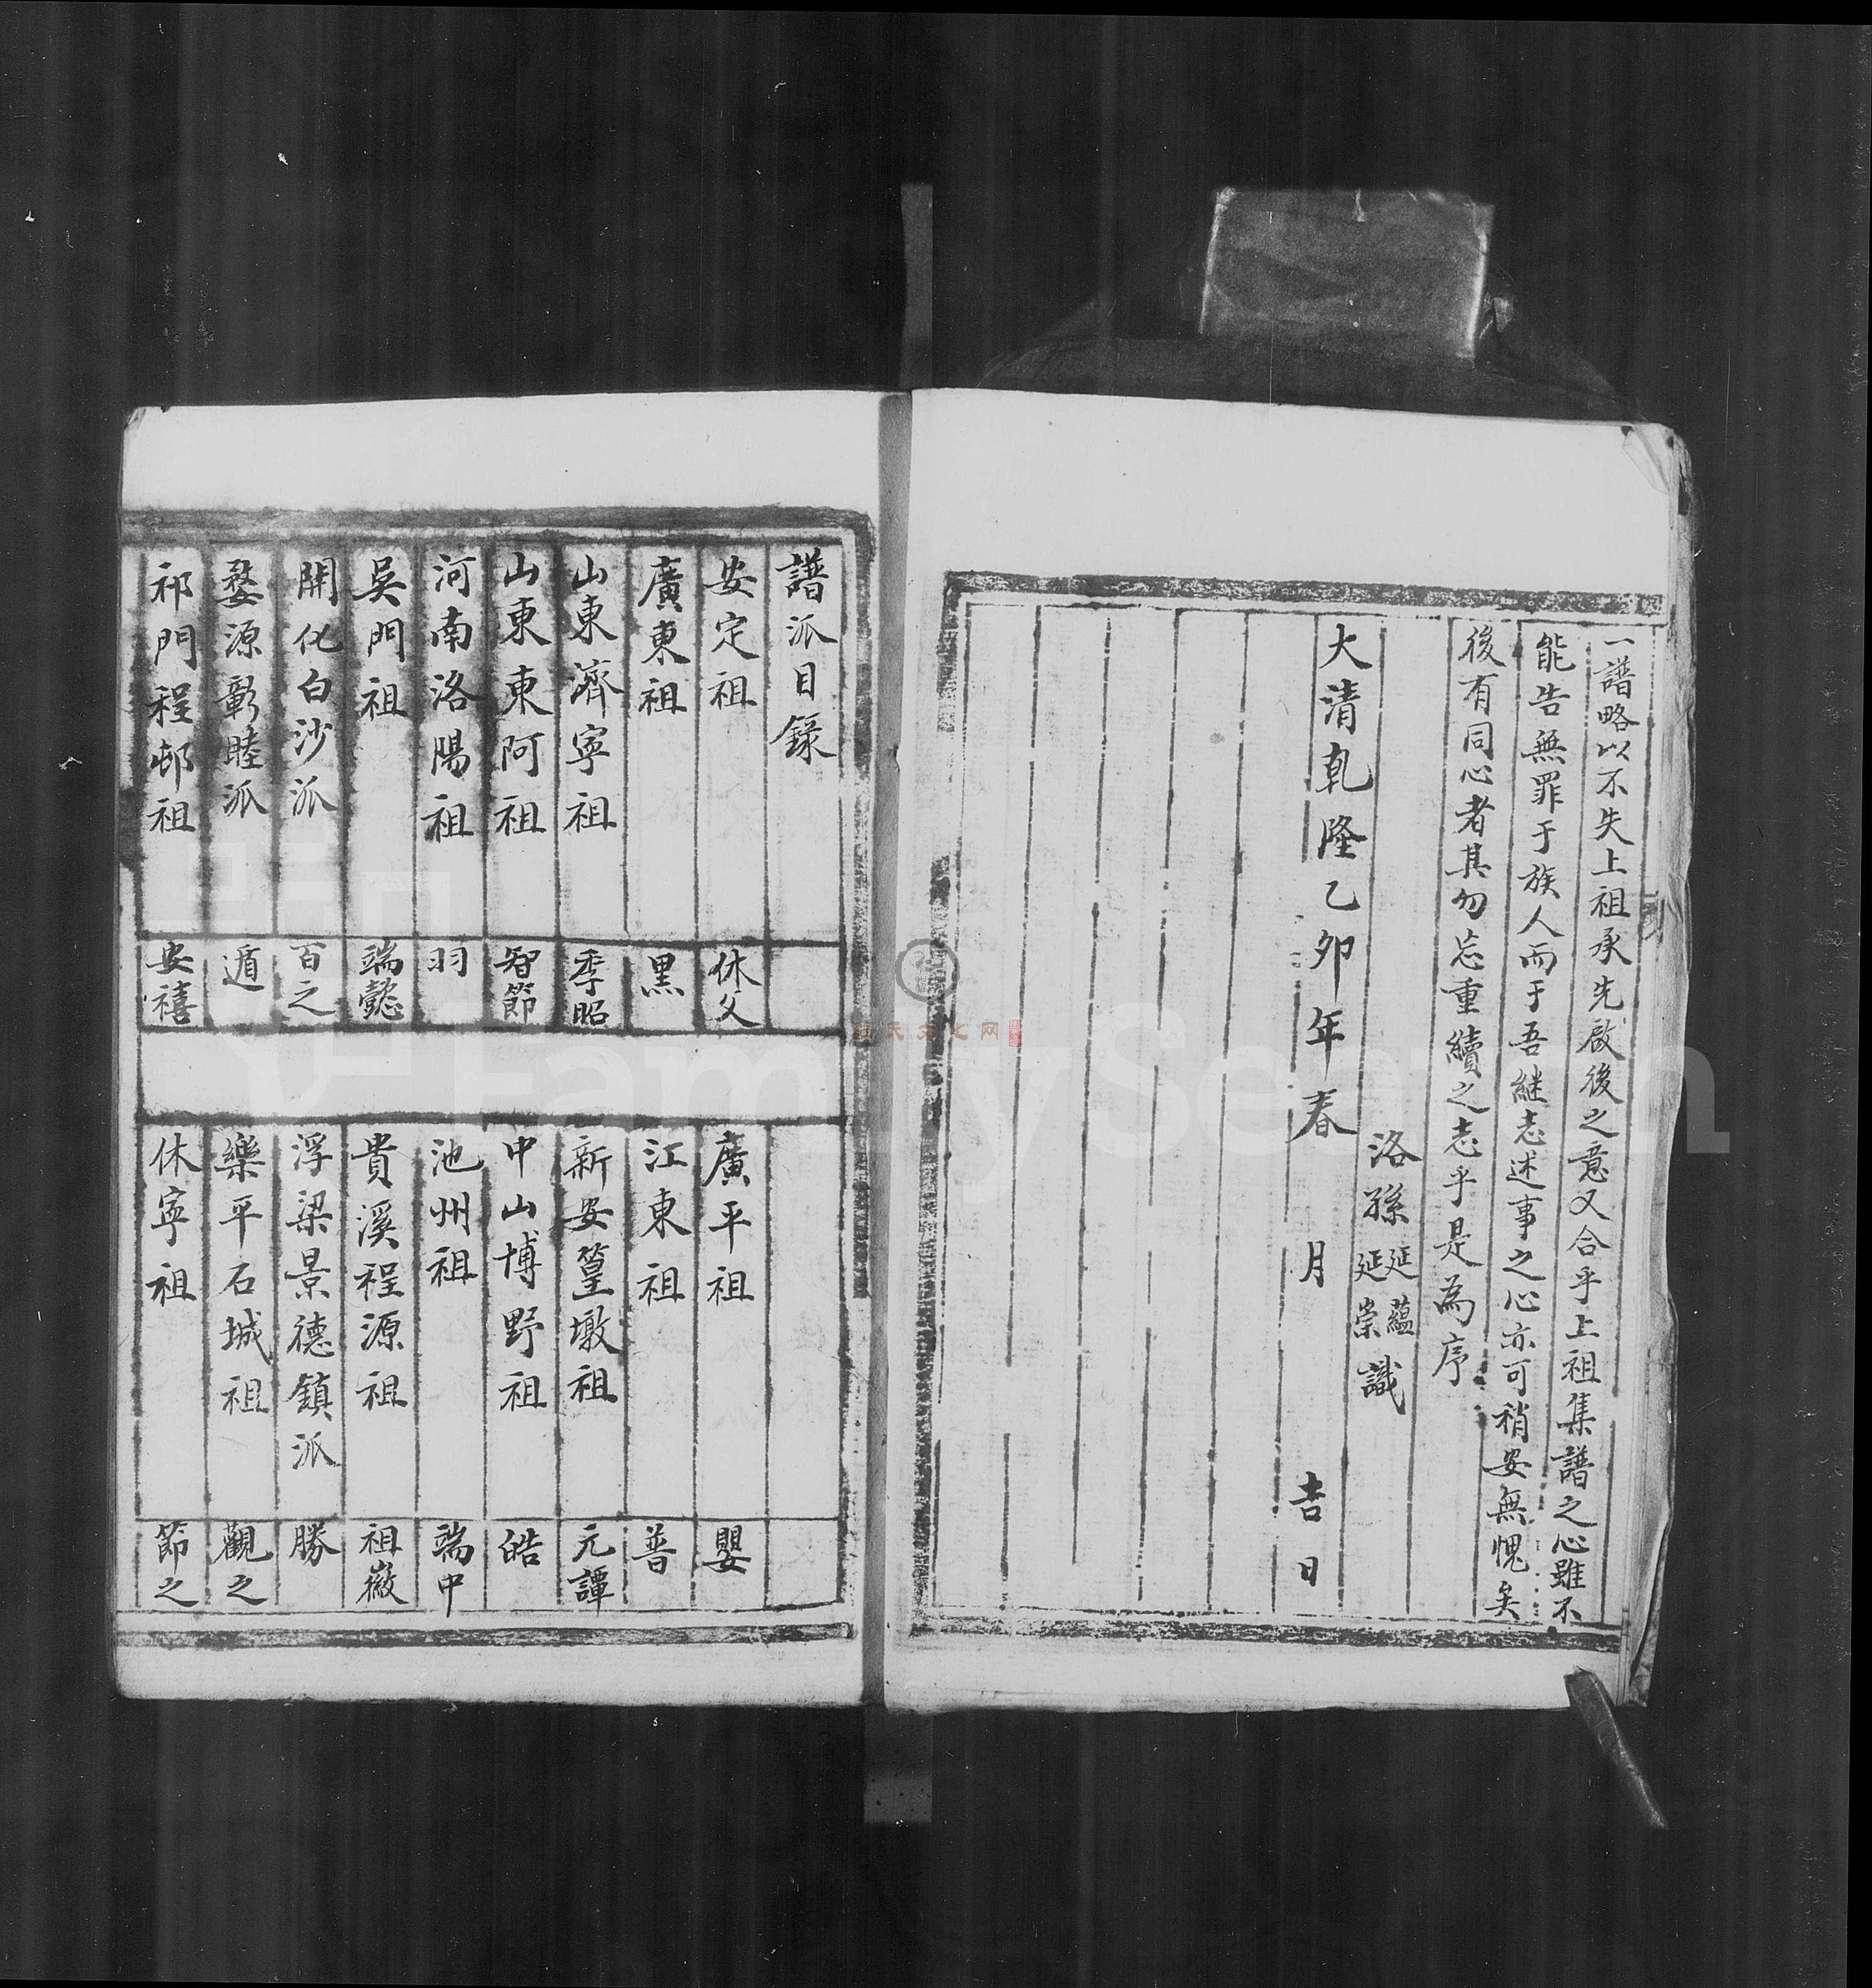 一譜略以不失上祖承先啟後之意又合乎上祖集譜之心雖不
能告無罪于族人而于吾継志述事之心亦可稍安無愧矣
後有同心者其勿忘重續之志乎是為序
洛孫延蘊延崇識
大清乹隆乙卯年春 月 吉日
譜派目錄
安定祖 休父
廣東祖 黑
山東濟寧祖 季昭
山東東阿祖 智節
河南洛陽祖 羽
吳門祖 端懿
開化白沙派 百之
婺源彰睦派 遁
祁門程邨祖 安禧
廣平祖 嬰
江東祖 普
新安篁墩祖 元譚
中山博野祖 皓
池州祖 端中
貴溪程源祖 祖嶶
浮梁景德鎮派 勝
樂平石城祖 觀之
休寧祖 節之
FamilySearch